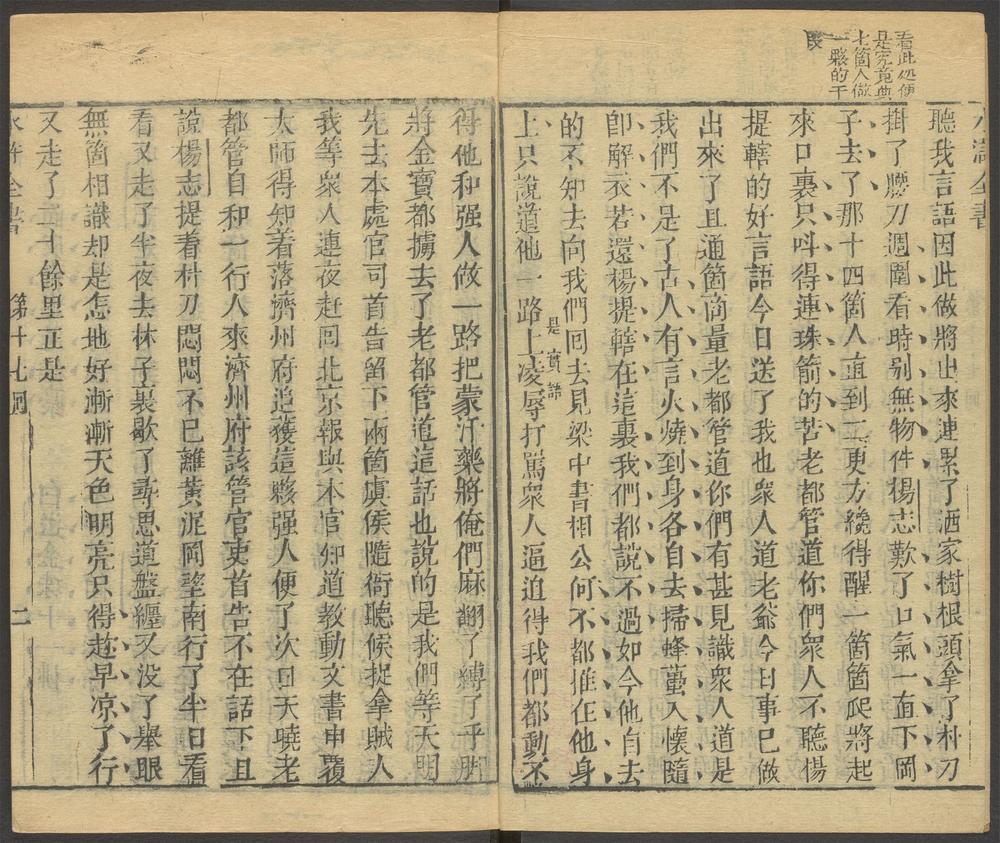 看此处便
是究竟與
七箇人做
一夥的干
聽我言語因此做將出來連累了洒家樹根頭拿了朴刀
掛了腰刀週圍看時別無物件楊志歎了口氣一直下岡
子去了那十四箇人直到二更方纔得醒一箇箇爬將起
來口裏只呌得連珠箭的苦老都管道你們衆人不聽楊
提轄的好言語今日送了我也衆人道老爺今日事已做
出來了且通箇商量老都管道你們有甚見識衆人道是
我們不是了古人有言火燒到身各自去掃蜂蠆入懷隨
卽解衣若還楊提轄在這裏我們都說不過如今他自去
的不知去向我們囘去見梁中書相公何不都推在他身
上只說道他一路上凌辱打駡衆人逼迫得我們都動不
是實話
得他和强人做一路把蒙汗藥將俺們麻翻了縛了手脚
將金寶都擄去了老都管道這話也說的是我們等天明
先去本處官司首告留下兩箇虞候隨衙聽候捉拿賊人
我等衆人連夜赶囘北京報與本官知道教動文書申覆
太師得知着落濟州府追獲這夥强人便了次日天曉老
都管自和一行人來濟州府該管官吏首告不在話下且
說楊志提着朴刀悶悶不已離黃泥岡望南行了半日看
看又走了半夜去林子裏歇了尋思道盤纏又没了舉眼
無箇相識却是怎地好漸漸天色明亮只得趂早凉了行
又走了二十餘里正是
第十七囘
二